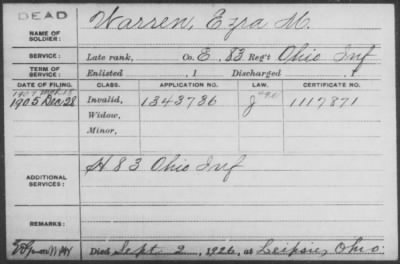 DEAD
NAME OF SOLDIER: Warren, Ezra M.
SERVICE: Late rank, Co. E. 83 Reg't Ohio Inf
TERM OF SERVICE: Enlisted , 1 Discharged , 1
DATE OF FILING. CLASS. APPLICATION NO. LAW. CERTIFICATE NO.
1905 Dec 28 Invalid, 1343736 1117871
Widow,
Minor,
ADDITIONAL SERVICES: H 83 Ohio Inf
REMARKS:
Died Sept 2, 1926, at Leipsic, Ohio.